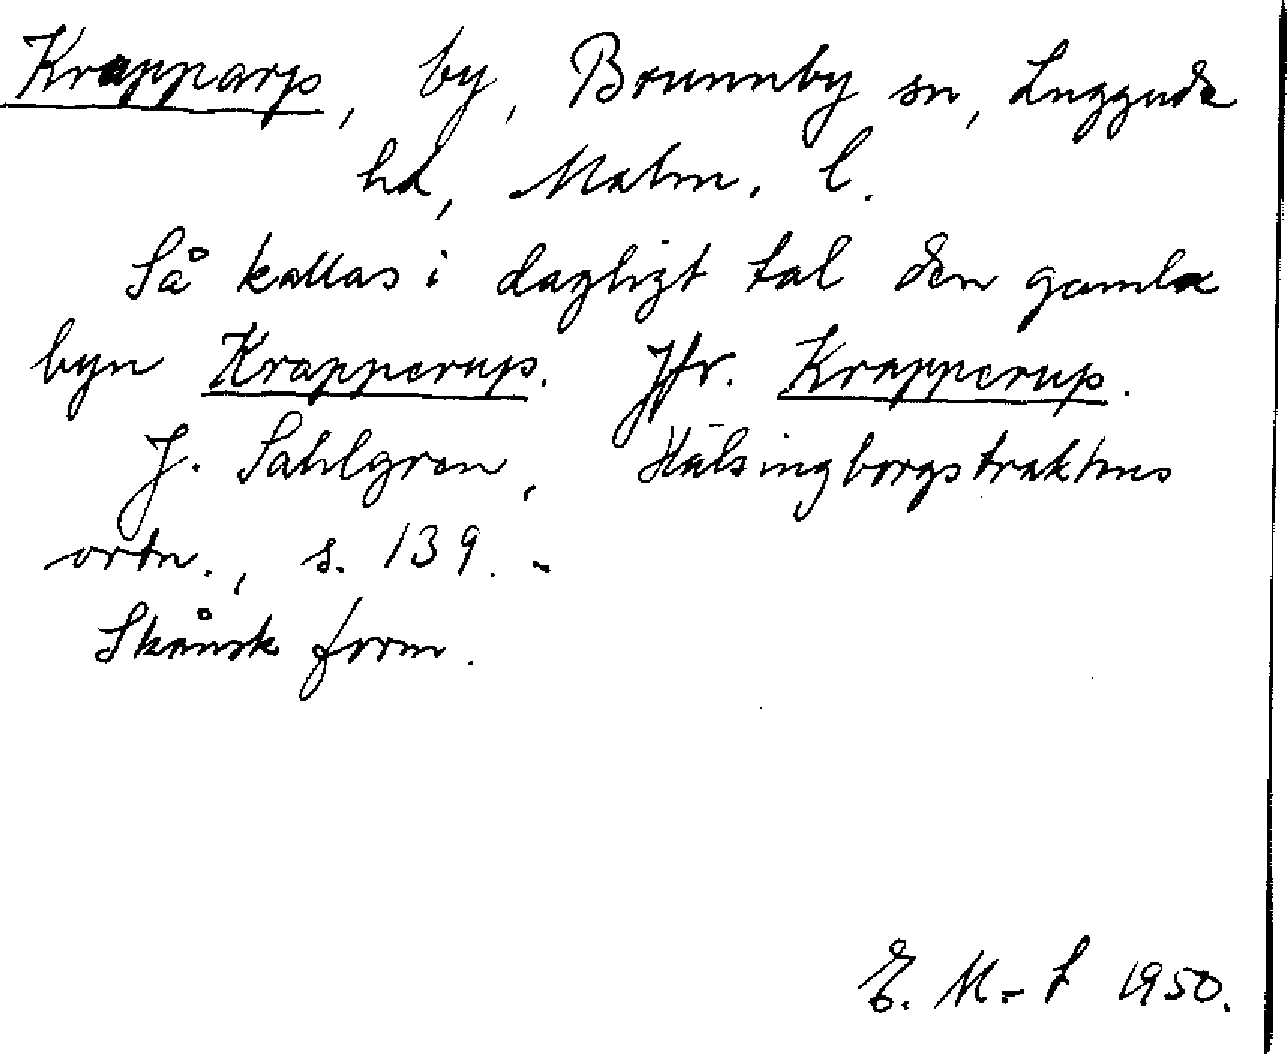 Krapparp, by, Brunnby sn, Luggude
hd, Malm. l.
Så kallas i dagligt tal den gamla
byn Krapperup. Jfr. Krapperup.
J. Sahlgren, Hälsingborgstraktens
ortn., s. 139. -
Skånsk form.
E. M-t 1950.